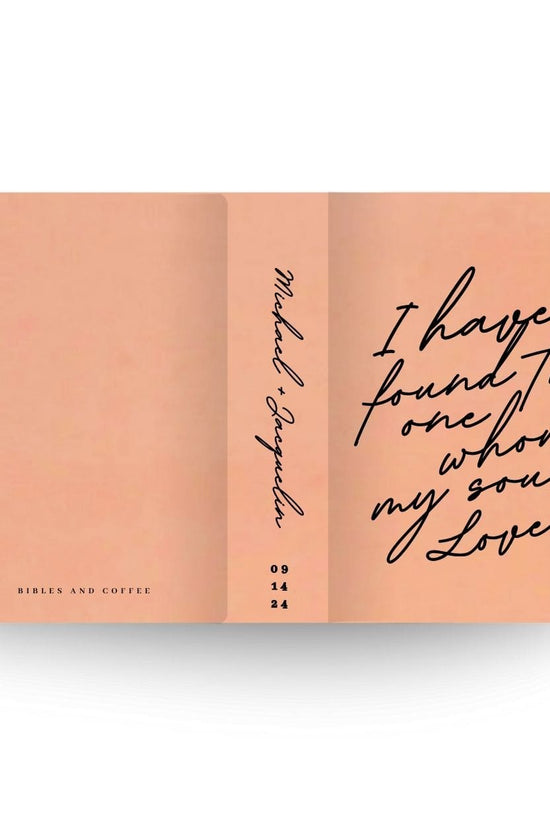 BIBLES AND COFFEE
Michael + Jacquelin
09
14
24
I have
found T
one
whom
my sou
Love